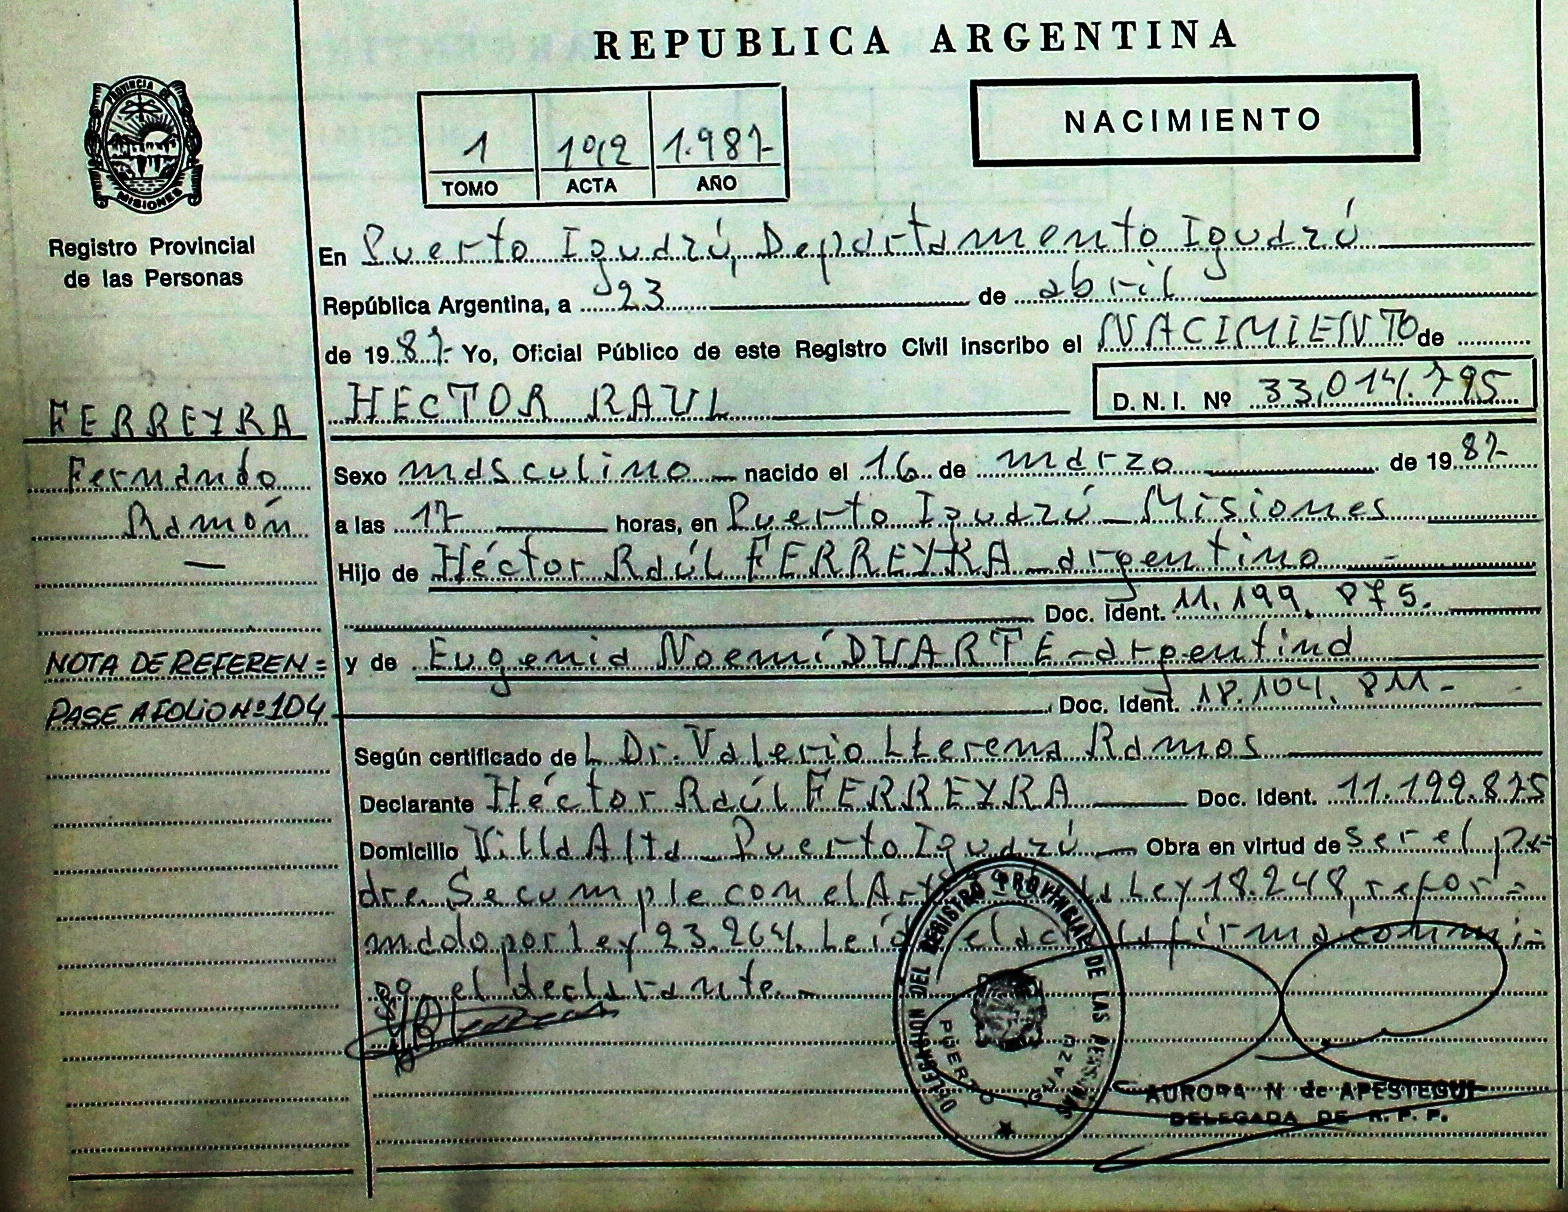 REPUBLICA ARGENTINA
NACIMIENTO
1 1012 1.987
TOMO ACTA AÑO
PROVINCIA DE MISIONES
Registro Provincial
de las Personas
En Puerto Iguazú, Departamento Iguazú
República Argentina, a 23 de abril
de 1987 Yo, Oficial Público de este Registro Civil inscribo el NACIMIENTO de
HECTOR RAUL D.N.I. Nº 33,014.795
FERREYRA
Fernando
Ramón
—
NOTA DE REFEREN=
PASE A FOLIO Nº 104
Sexo masculino — nacido el 16 de marzo de 1987
a las 17 horas, en Puerto Iguazú Misiones
Hijo de Héctor Raúl FERREYRA argentino
Doc. Ident. 11.199.875.
y de Eugenia Noemí DUARTE - argentina
Doc. Ident. 18.104.811-
Según certificado de L Dr. Valerio Llerena Ramos
Declarante Héctor Raúl FERREYRA Doc. Ident. 11.199.875
Domicilio Villa Alta Puerto Iguazú Obra en virtud de ser el pa=
dre. Se cumple con el Ley 18.248, refor=
mado por ley 23.264. Leída el acta la firma conmi=
go el declarante.-
DELEGACION DEL REGISTRO PROVINCIAL DE LAS PERSONAS
PUERTO IGUAZU
AURORA N de APESTEGUI
DELEGADA DE R. P. P.